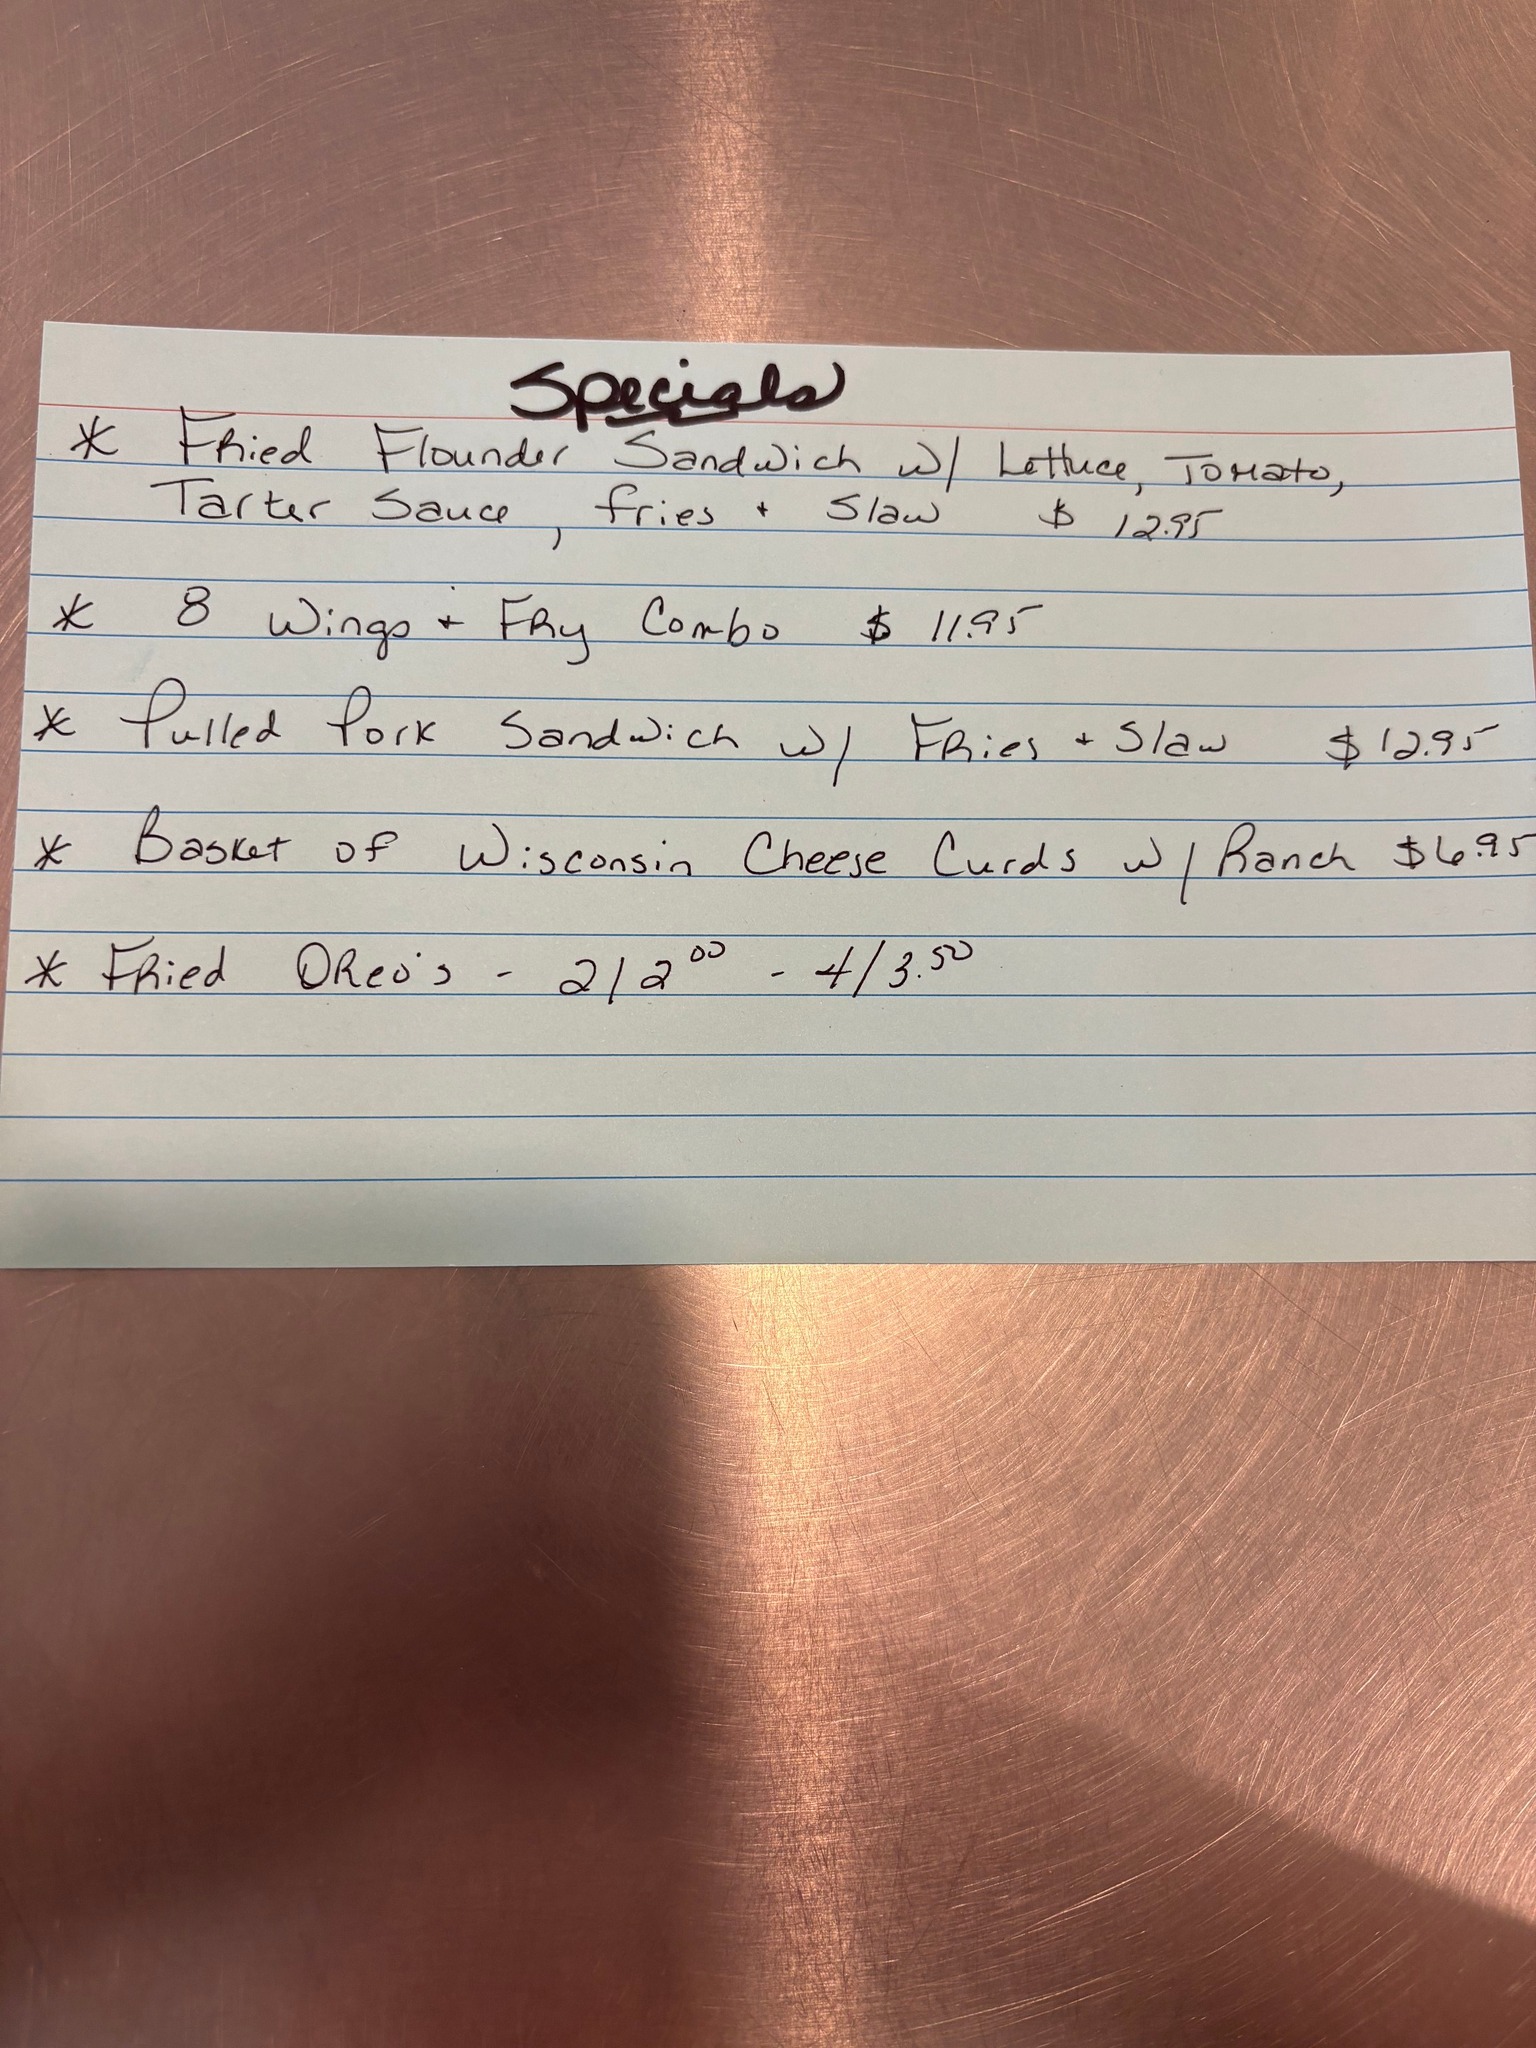 Specials
* Fried Flounder Sandwich w/ Lettuce, Tomato,
Tarter Sauce, fries + Slaw $ 12.95
* 8 Wings + Fry Combo $ 11.95
* Pulled Pork Sandwich w/ Fries + Slaw $12.95
* Basket of Wisconsin Cheese Curds w/ Ranch $6.95
* Fried Oreo's - 2/2.00 - 4/3.50